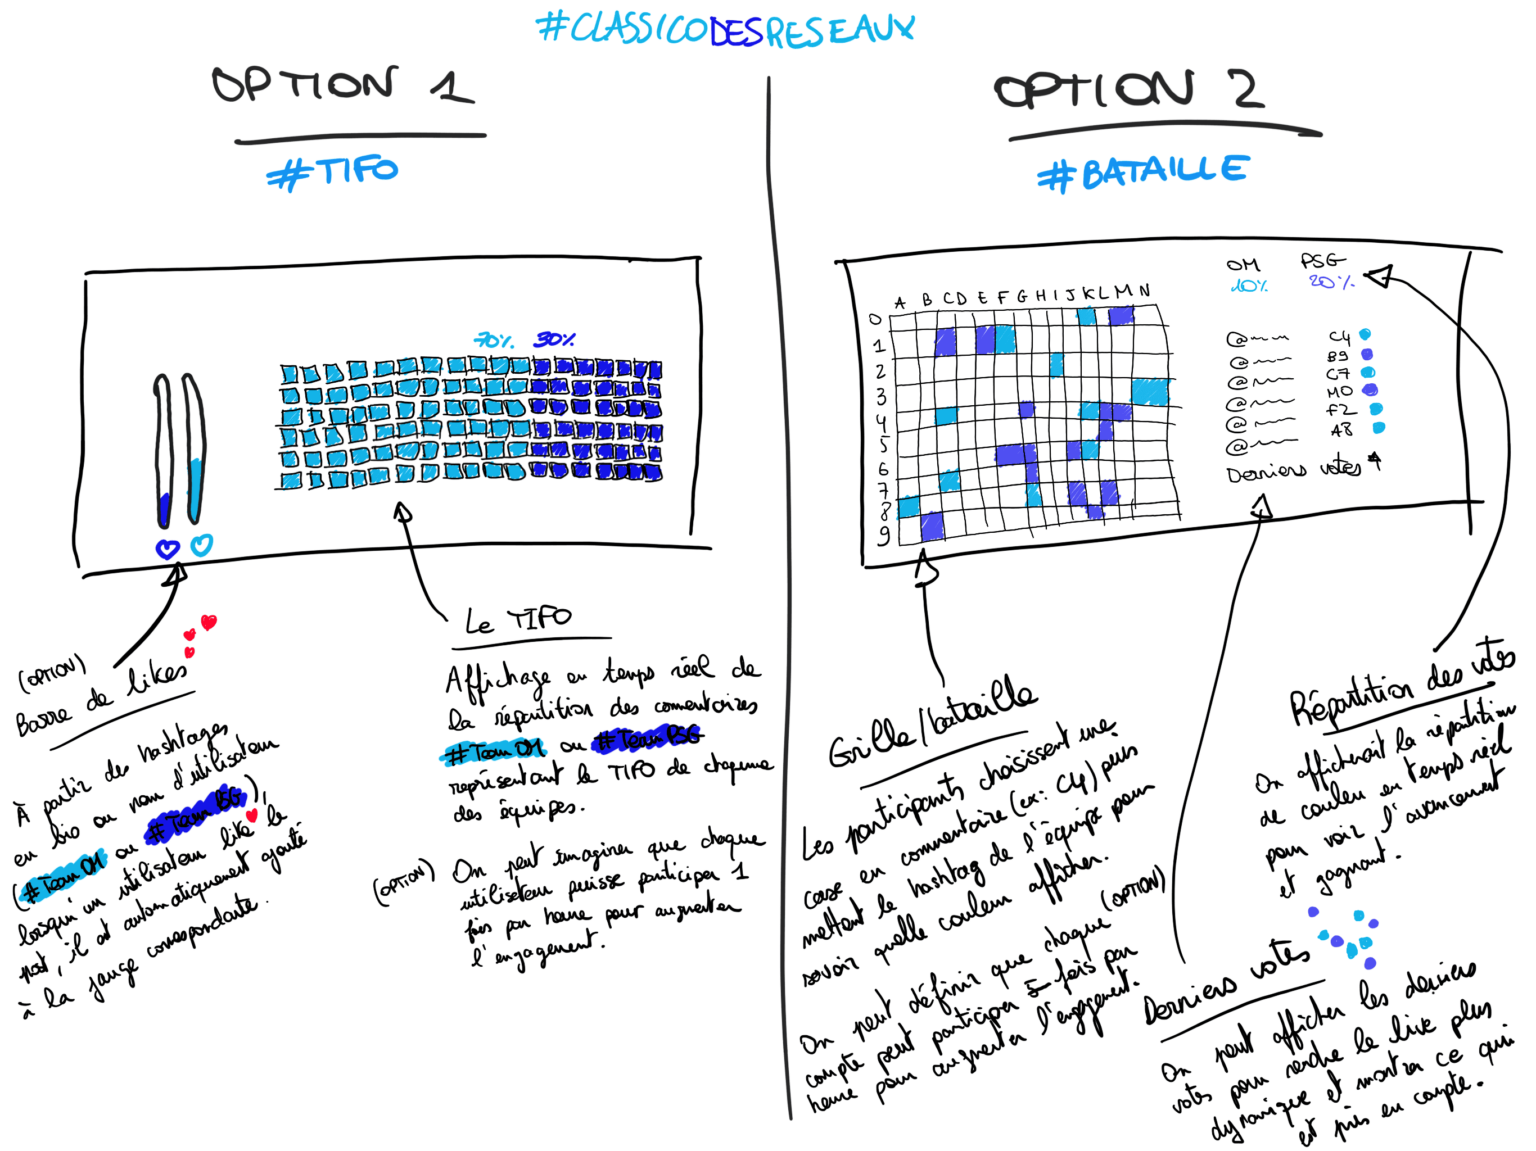 #CLASSICODESRESEAUX
OPTION 1
#TIFO
70% 30%
(OPTION)
Barre de likes
À partir des hashtages
en bio ou nom d'utilisateur
(#Team OM ou #Team PSG),
lorsqu'un utilisateur like le
post, il est automatiquement ajouté
à la jauge correspondante.
Le TIFO
Affichage en temps réel de
la répartition des commentaires
#Team OM ou #Team PSG
représentant le TIFO de chacune
des équipes.
(OPTION) On peut imaginer que chaque
utilisateur puisse participer 1
fois par heure pour augmenter
l'engagement.
OPTION 2
#BATAILLE
A B C D E F G H I J K L M N
0
1
2
3
4
5
6
7
8
9
OM PSG
10% 20%
@ C4
@ B9
@ G7
@ M0
@ F2
@ A8
Derniers votes
Grille/bataille
Les participants choisissent une
case en commentaire (ex: C4) puis
mettent le hashtag de l'équipe pour
savoir quelle couleur afficher.
(OPTION)
On peut définir que chaque
compte peut participer 5 fois par
heure pour augmenter l'engagement.
Répartition des votes
On afficherait la répartition
de couleur en temps réel
pour voir l'avancement
et gagnant.
Derniers votes
On peut afficher les derniers
votes pour rendre le live plus
dynamique et montrer ce qui
est pris en compte.